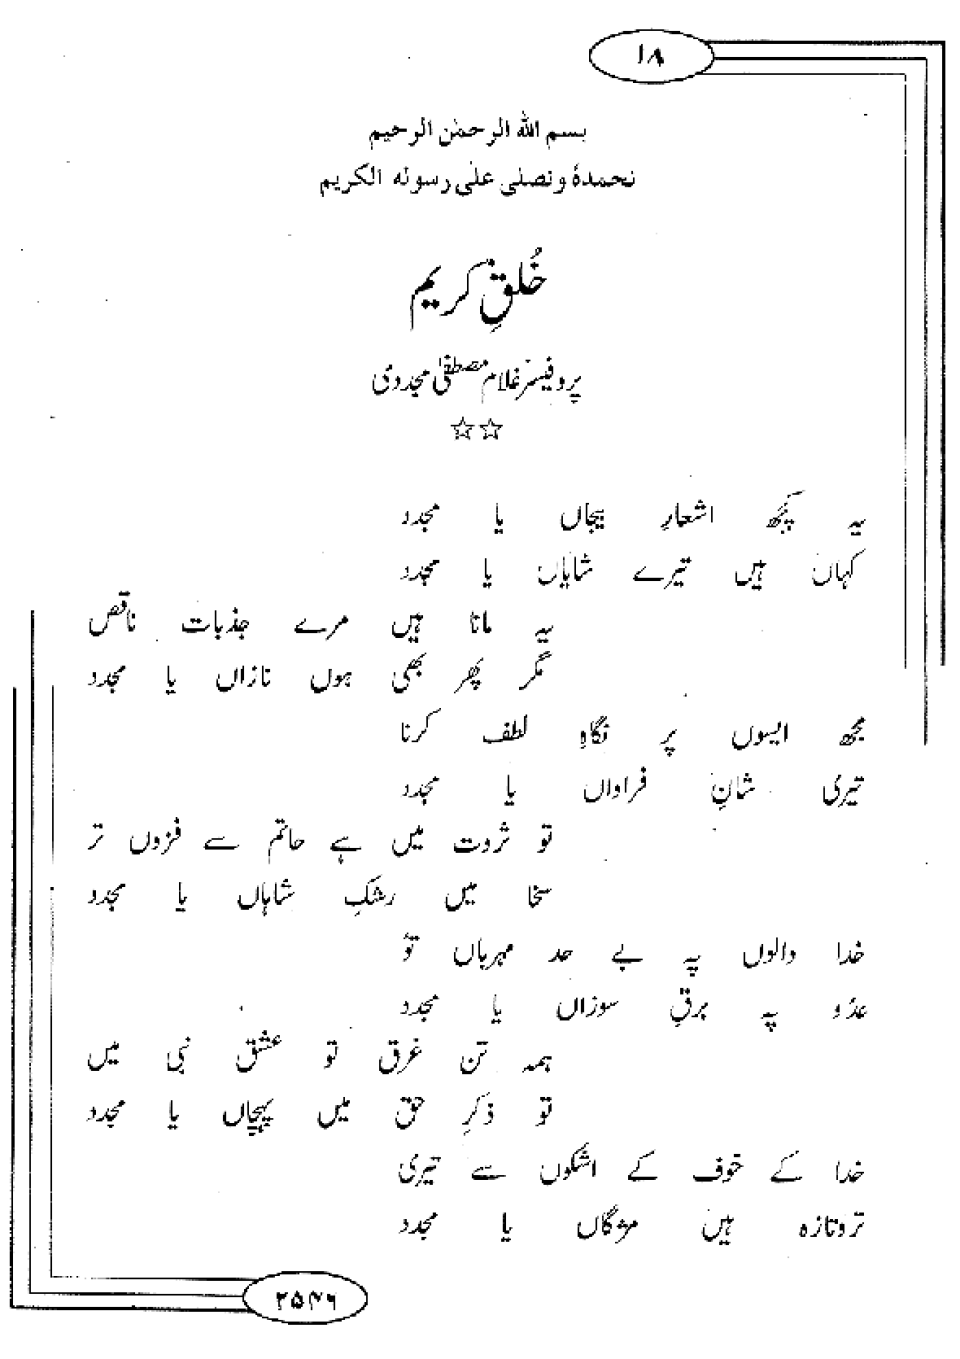 ۱۸
بسم اللہ الرحمٰن الرحیم
نحمدہٗ ونصلی علی رسولہ الکریم
خُلقِ کریم
پروفیسر غلام مصطفیٰ مجددی
☆☆
یہ کچھ اشعارِ بیجاں یا مجدد
کہاں ہیں تیرے شایاں یا مجدد
یہ مانا ہیں مرے جذبات ناقص
مگر پھر بھی ہوں نازاں یا مجدد
مجھ ایسوں پر نگاہِ لطف کرنا
تیری شانِ فراواں یا مجدد
تو ثروت میں ہے حاتم سے فزوں تر
سخا میں رشکِ شاہاں یا مجدد
خدا والوں پہ بے حد مہرباں تو
عدو پہ برقِ سوزاں یا مجدد
ہمہ تن غرق تو عشق نبی میں
تو ذکرِ حق میں پیچاں یا مجدد
خدا کے خوف کے اشکوں سے تیری
تروتازہ ہیں مژگاں یا مجدد
۲۵۴۶